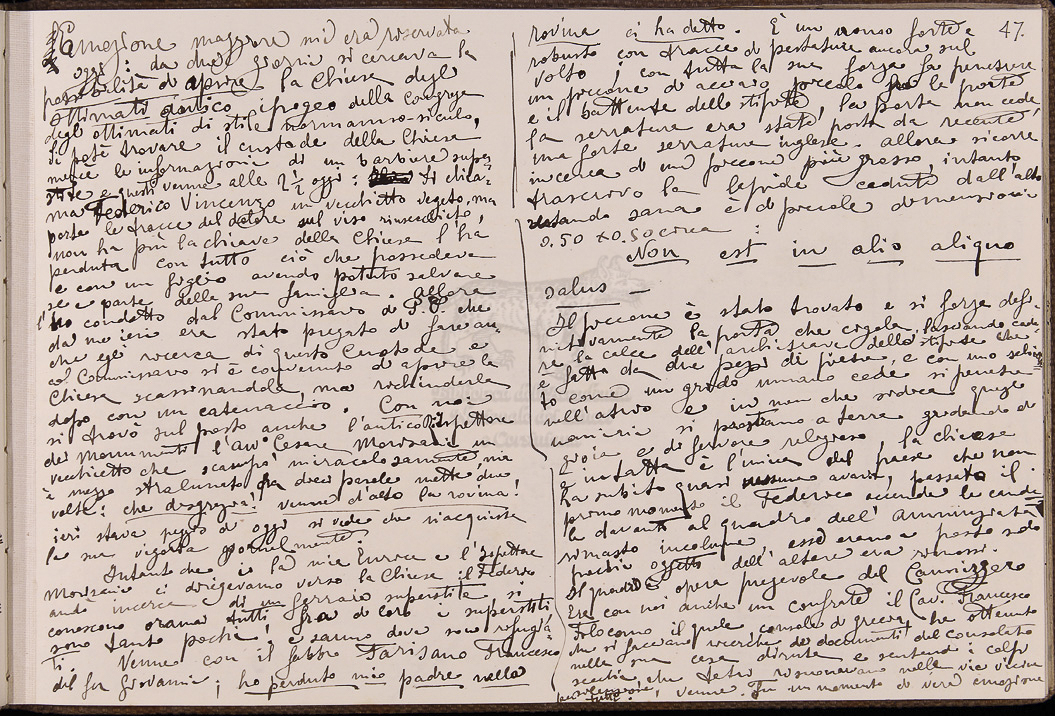 Emozione maggiore mi era riservata
oggi: da due giorni si cercava la
possibilità di aprire la Chiesa degli
Ottimati antico ipogeo della Congrega
degli ottimati di stile normanno-siculo,
si potè trovare il custode della Chiesa
mercè le informazioni di un barbiere super
stite e questi venne alle 2 1/2 oggi: Si chia-
ma Federico Vincenzo un vecchietto vegeto, ma
porta le tracce del dolore sul viso rinsecchito,
non ha più la chiave della Chiesa l'ha
perduta con tutto ciò che possedeva
e con un figlio avendo potuto salvare
se e parte della sua famiglia. Allora
l'ho condotto dal Commissario di P.S. che
da me ieri era stato pregato di fare an
che egli ricerca di questo Custode e
col Commissario si è convenuto di aprire la
Chiesa scassinandola, ma richiuderla
dopo con un catenaccio. Con noi
si trovò sul posto anche l'antico Ispettore
dei Monumenti l'Avv. Cesare Morisani un
vecchietto che scampò miracolosamente ma
è mezzo stralunato fra dieci parole mette due
volte: che disgrazia! venne d'alto la rovina!
ieri stava peggio di oggi si vede che riacquista
la sua vigoria giornalmente.
Intanto che io la mia Enrica e l'Ispettore
Morisani ci dirigevamo verso la Chiesa il Federico
andò in cerca di un ferraio superstite si
conoscono oramai tutti fra di loro i superstiti
sono tanto pochi, e sanno dove sono rifugia
ti. Venne con il fabbro Tarisano Francesco
del fu Giovanni, ho perduto mio padre nella
47.
rovina ci ha detto. È un uomo forte e
robusto con tracce di pestature ancora sul
volto; con tutta la sua forza fa penetrare
un piccone d'acciaio piccolo fra la porta
e il battente dello stipite, la porta non cede
la serratura era stata posta da recente,
una forte serratura inglese. Allora si corre
in cerca di un piccone più grosso, intanto
trascrivo la lapide caduta dall'alto
restando sana è di piccole dimensioni
0.50 x 0.50 circa:
Non est in alio aliquo
salus –
Il piccone è stato trovato e si forza defi-
nitivamente la porta che cigola, lasciando cade
re la calce dell'architrave dello stipite che
è fatto da due pezzi di pietra, e con uno schian
to come un grido umano cede si penetra
nell'atrio e in men che si dica quegli
uomini si prostrano a terra gridando di
gioia e di fervore religioso, la chiesa
è intatta è l'unica del paese che non
ha subito quasi nessuna avaria, passato il
primo momento il Federico accende le cande
le davanti al quadro dell'Annunziata
rimasto incolume, essi erano a posto solo
pochi oggetti dell'altare era rimossi.
Il quadro è opera pregevole del Caminzzero
Era con noi anche un confrate il Cav. Francesco
Filocamo il quale console di Grecia, ha ottenuto
che si facciano ricerche di documenti del consolato
nella sua casa diruta e sentendo i colpi
secchi, che tetri risuonavano nella via vicina
venne. Fu un momento di vera emozione
per tutti.